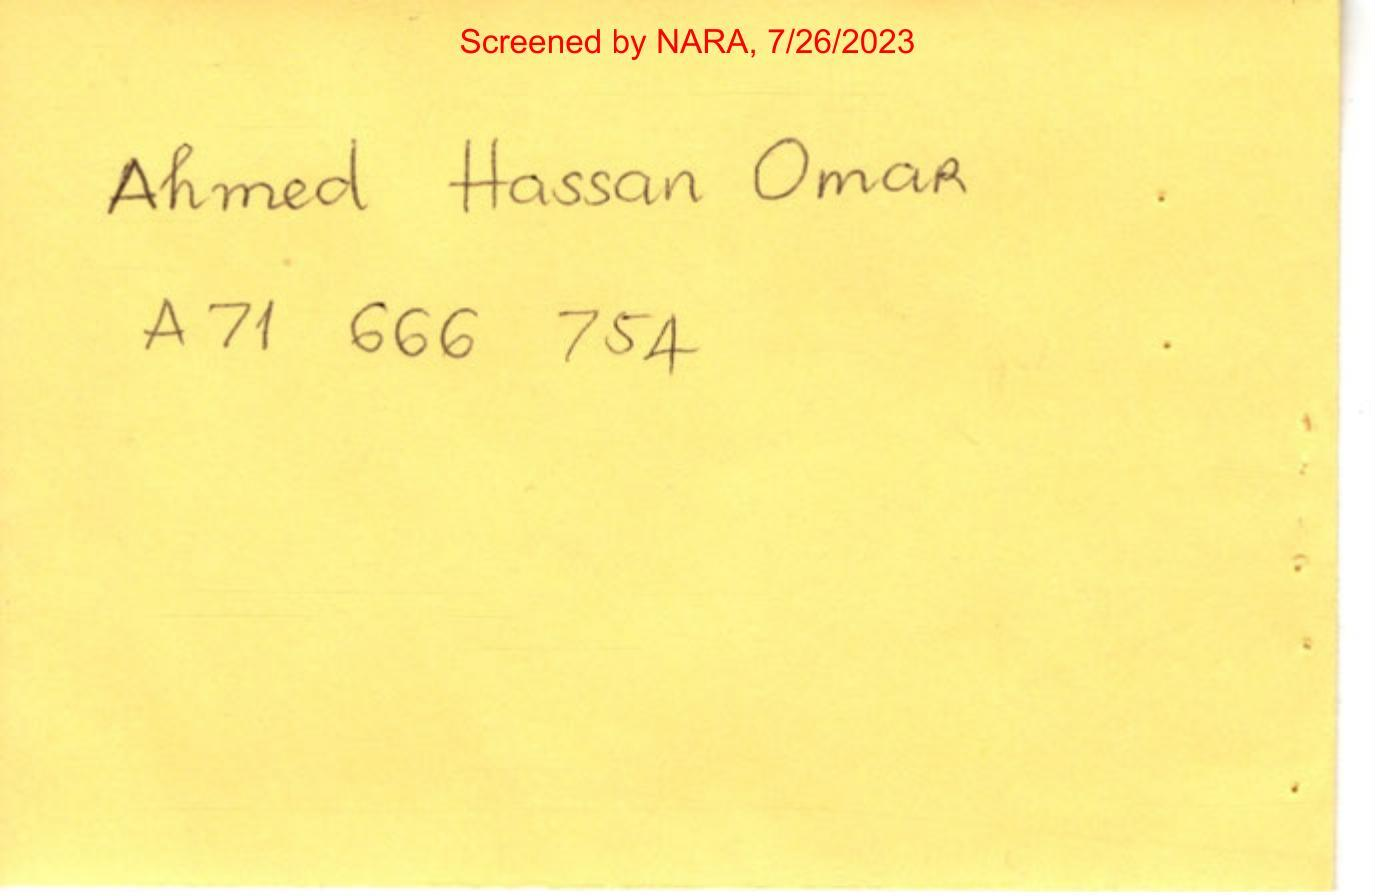 Screened by NARA, 7/26/2023
Ahmed Hassan Omar
A71 666 754